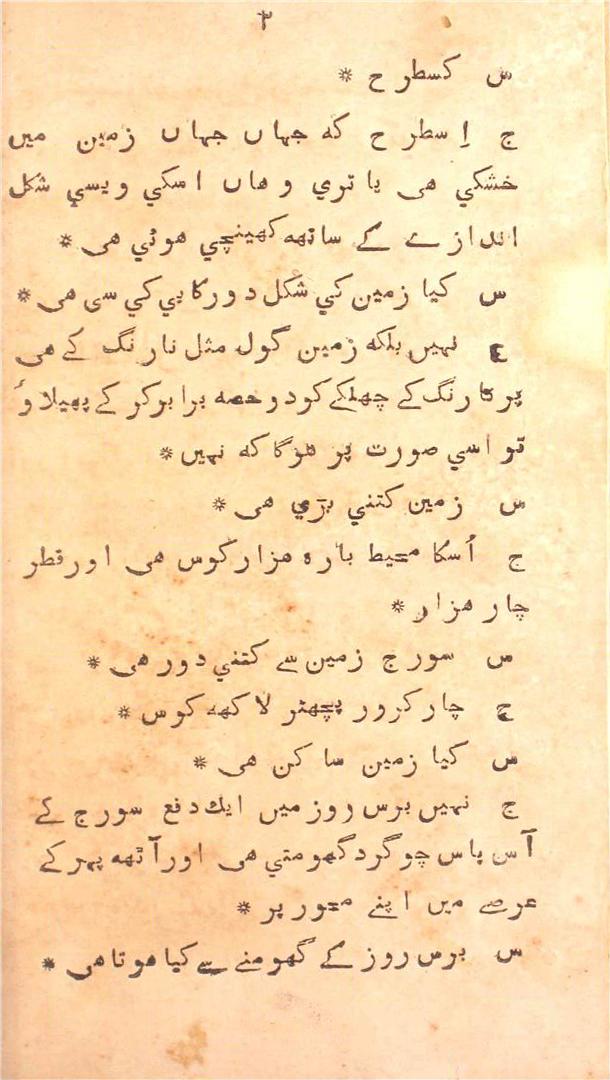 ٣
س کسطرح *
ج اِسطرح که جهاں جهاں زمین میں
خشکي هی یا تري وهاں اسکي ویسي شکل
اندازے کے ساتهه کهینچي هوئي هی *
س کیا زمین کي شکل دو رکابي کي سی هی *
ج نهیں بلکه زمین گول مثل نارنگ کے هی
پر نارنگ کے چهلکے کو دو حصه برابر کر کے پهیلاوٴ
تو اسي صورت پر هوگا که نهیں *
س زمین کتني بڑي هی *
ج اُسکا محیط باره هزار کوس هی اور قطر
چار هزار *
س سورج زمین سے کتني دور هی *
ج چار کرور پچهتر لاکهه کوس *
س کیا زمین ساکن هی *
ج نهیں برس روز میں ایك دفع سورج کے
آس پاس چوگرد گهومتي هی اور آٹهه پهر کے
عرصے میں اپنے محور پر *
س برس روز کے گهومنے سے کیا هوتا هی *